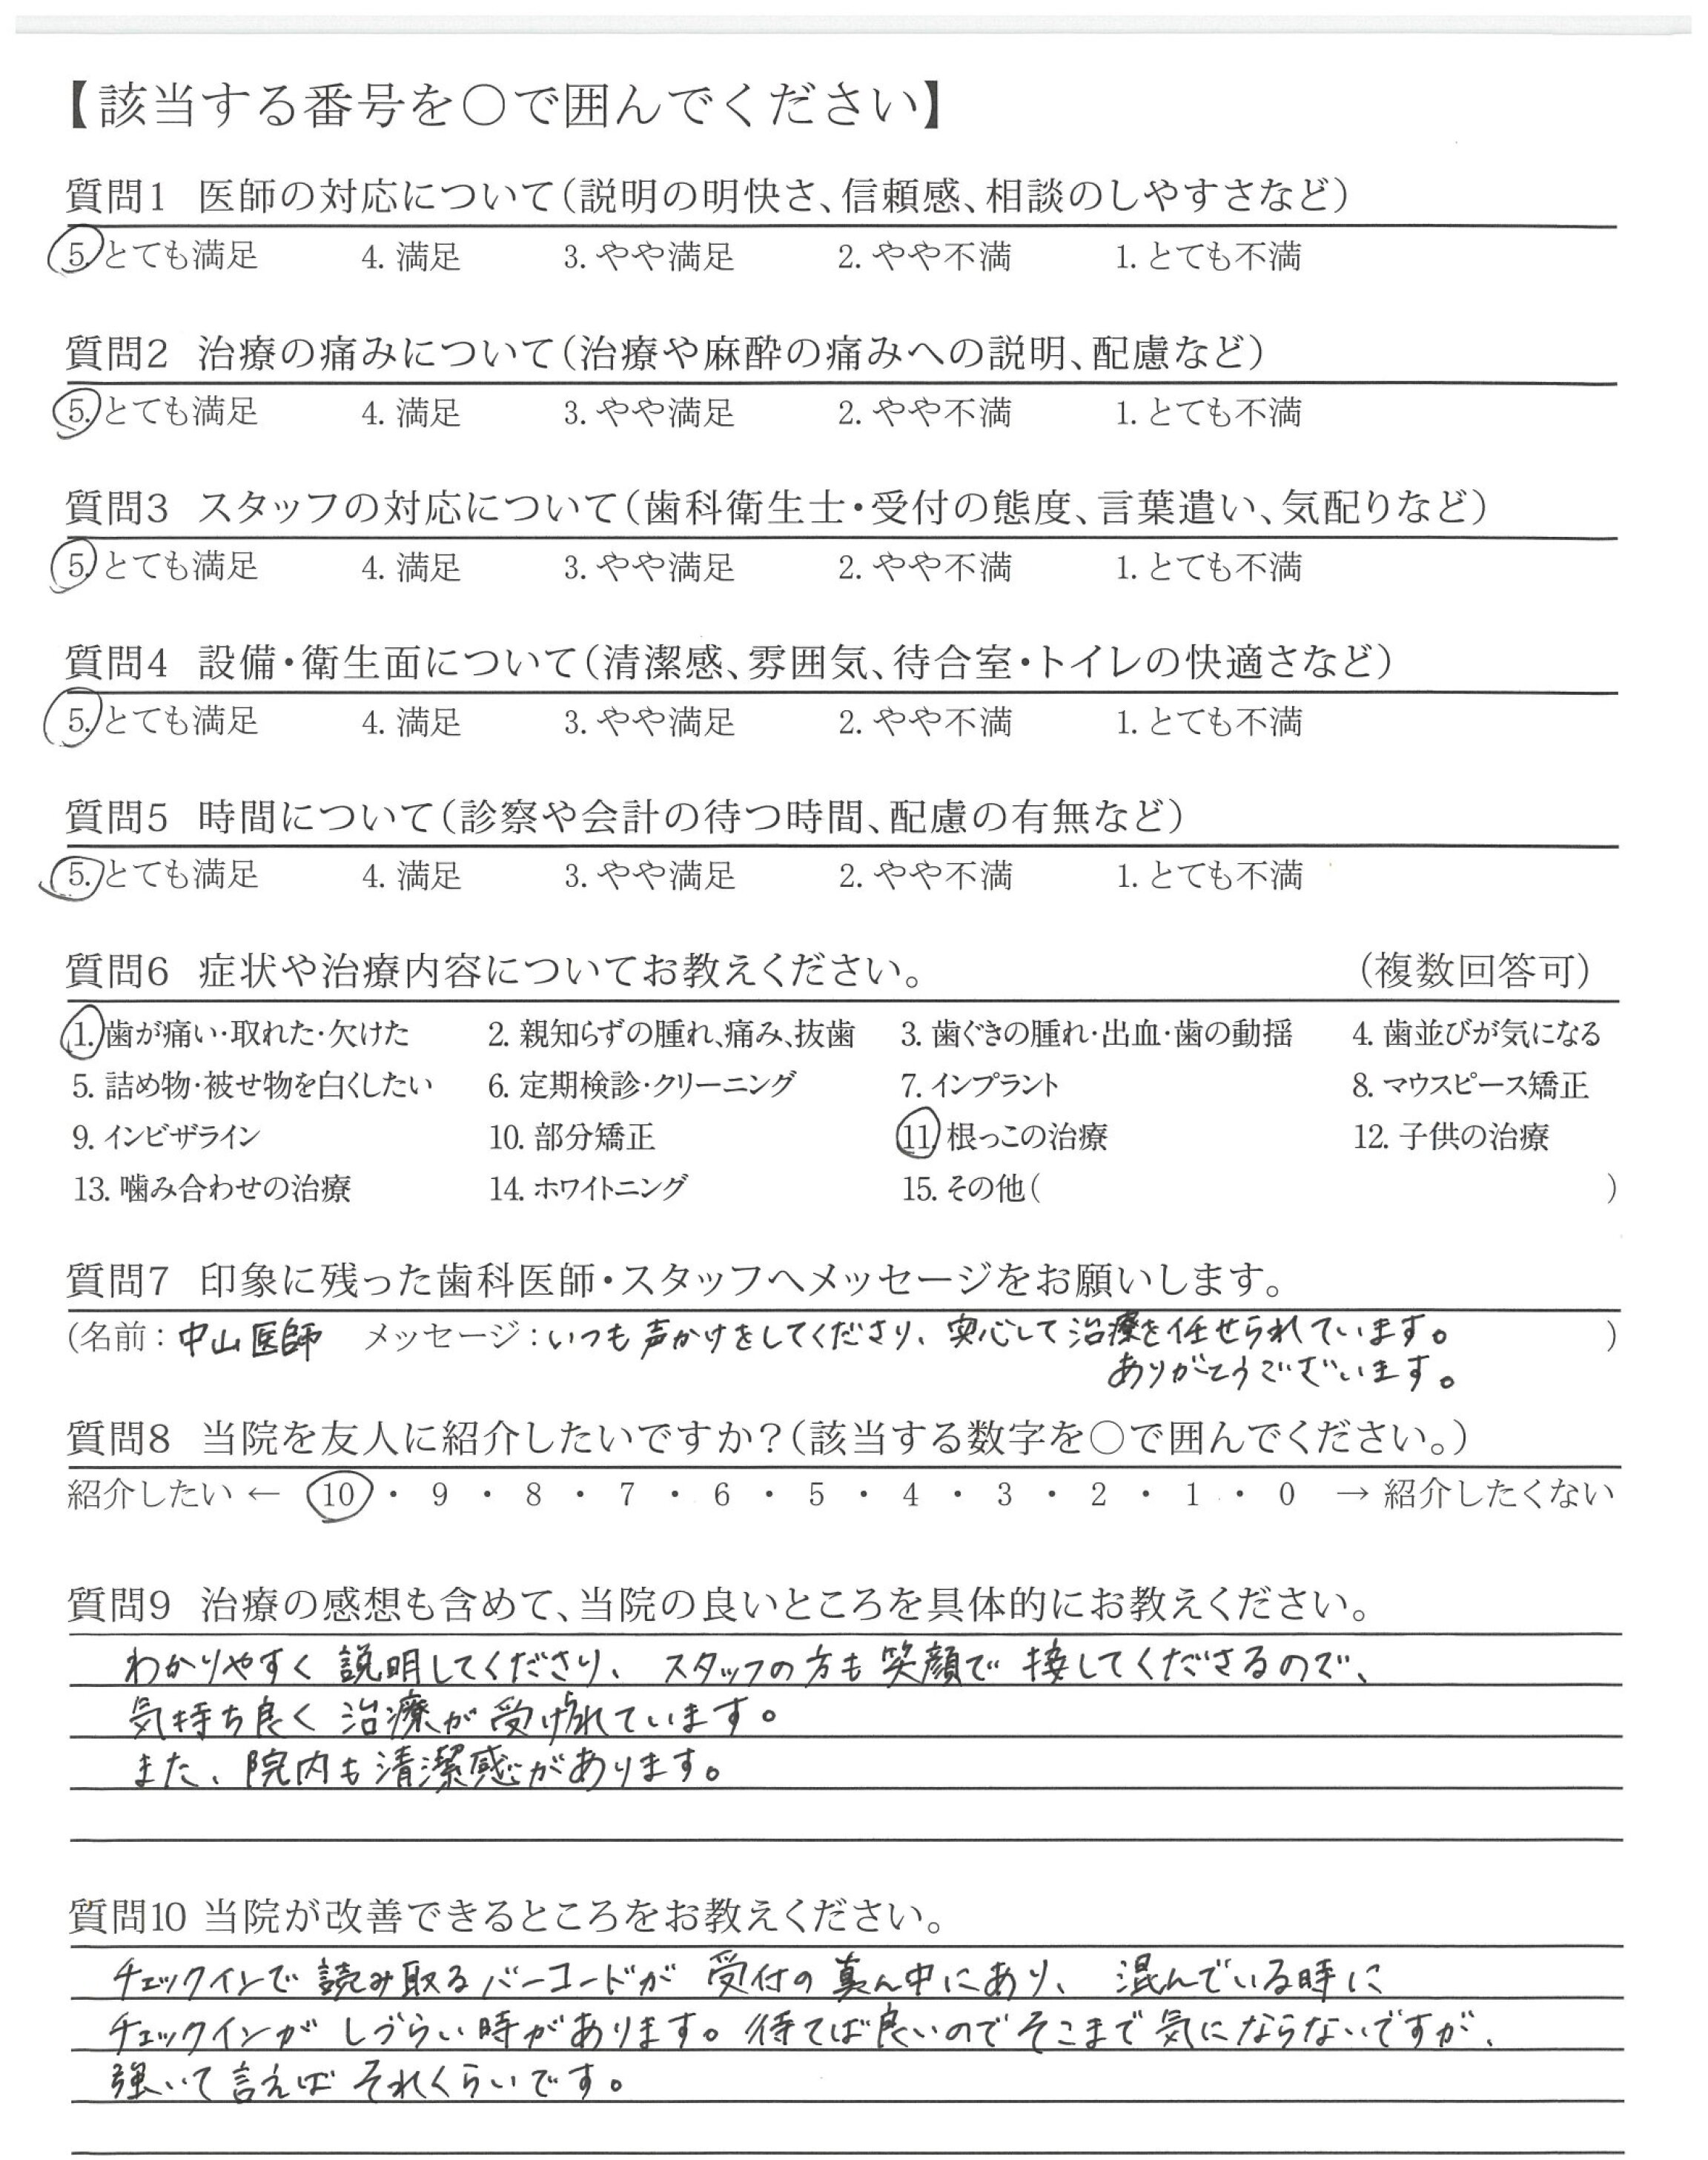 【該当する番号を〇で囲んでください】
質問1 医師の対応について（説明の明快さ、信頼感、相談のしやすさなど）
5. とても満足 4. 満足 3. やや満足 2. やや不満 1. とても不満
質問2 治療の痛みについて（治療や麻酔の痛みへの説明、配慮など）
5. とても満足 4. 満足 3. やや満足 2. やや不満 1. とても不満
質問3 スタッフの対応について（歯科衛生士・受付の態度、言葉遣い、気配りなど）
5. とても満足 4. 満足 3. やや満足 2. やや不満 1. とても不満
質問4 設備・衛生面について（清潔感、雰囲気、待合室・トイレの快適さなど）
5. とても満足 4. 満足 3. やや満足 2. やや不満 1. とても不満
質問5 時間について（診察や会計の待つ時間、配慮の有無など）
5. とても満足 4. 満足 3. やや満足 2. やや不満 1. とても不満
質問6 症状や治療内容についてお教えください。 （複数回答可）
1. 歯が痛い・取れた・欠けた 2. 親知らずの腫れ、痛み、抜歯 3. 歯ぐきの腫れ・出血・歯の動揺 4. 歯並びが気になる
5. 詰め物・被せ物を白くしたい 6. 定期検診・クリーニング 7. インプラント 8. マウスピース矯正
9. インビザライン 10. 部分矯正 11. 根っこの治療 12. 子供の治療
13. 噛み合わせの治療 14. ホワイトニング 15. その他（ ）
質問7 印象に残った歯科医師・スタッフへメッセージをお願いします。
（名前：中山医師 メッセージ：いつも声かけをしてくださり、安心して治療を任せられています。 ）
ありがとうございます。
質問8 当院を友人に紹介したいですか？（該当する数字を〇で囲んでください。）
紹介したい ← 10 ・ 9 ・ 8 ・ 7 ・ 6 ・ 5 ・ 4 ・ 3 ・ 2 ・ 1 ・ 0 → 紹介したくない
質問9 治療の感想も含めて、当院の良いところを具体的にお教えください。
わかりやすく説明してくださり、スタッフの方も笑顔で接してくださるので、
気持ち良く治療が受けられています。
また、院内も清潔感があります。
質問10 当院が改善できるところをお教えください。
チェックインで読み取るバーコードが受付の真ん中にあり、混んでいる時に
チェックインがしづらい時があります。待てば良いのでそこまで気にならないですが、
強いて言えばそれくらいです。